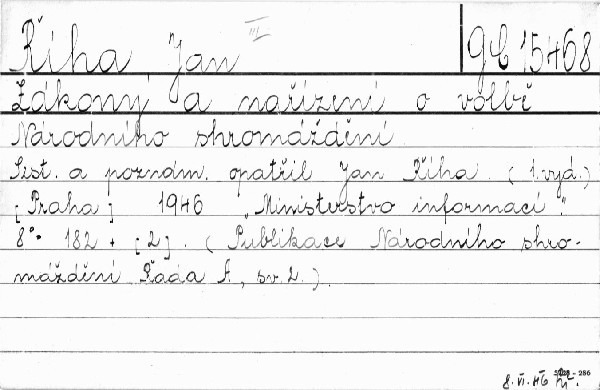 Říha Jan III gC 15468
Zákony a nařízení o volbě
Národního shromáždění
Sest. a poznám. opatřil Jan Říha. (1. vyd.)
[Praha] 1946 „Ministerstvo informací".
8°. 182 + [2]. (Publikace Národního shro-
máždění Řada A, sv. 2.)
8. VI. 46
- 286